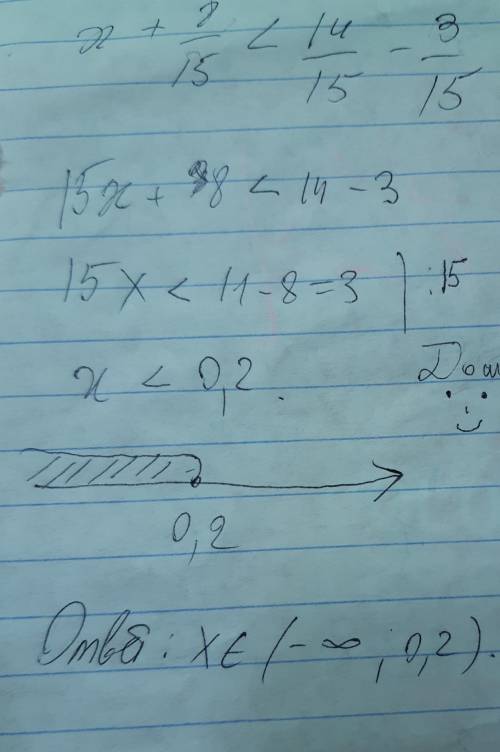 x + 8/15 < 14/15 - 3/15
15x + 8 < 14 - 3
15x < 11 - 8 = 3 | :15
x < 0,2.
0,2
Ответ: x ∈ (-∞; 0,2).